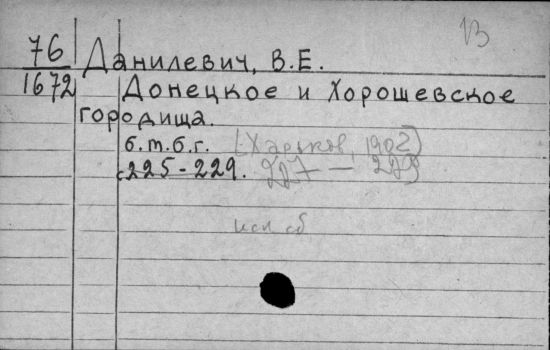 13
76 Данилевич, В.Е.
1672 Донецкое и Хорошевское
городища.
б.т.б.г. [Харьков, 1902]
с225-229. 227 — 229